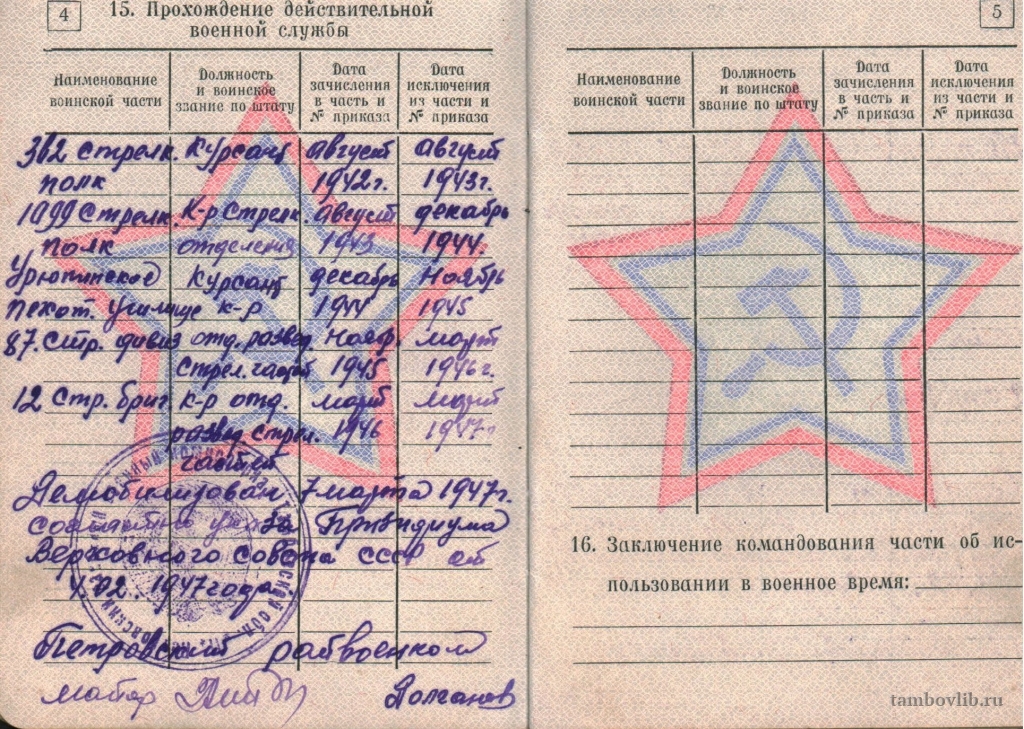 4
15. Прохождение действительной
военной службы
Наименование
воинской части
Должность
и воинское
звание по штату
Дата
зачисления
в часть и
№ приказа
Дата
исключения
из части и
№ приказа
312 стрелк. Курсант август август
полк 1942г. 1943г.
1099 стрелк. К-р стрелк. август декабрь
полк отделения 1943 1944.
Урюпинское Курсант декабрь Ноябрь
пехот. училище к-р 1944 1945
87. Стр. дивиз отд. развед. Нояб. март
стрел. части 1945 1946г.
12 Стр. бриг. к-р отд. март март
развед. стрел. 1946 1947г
части
Демобилизован 7 марта 1947г.
Президиума
Верховного совета СССР от
4.02. 1947 года
Петровский райвоенком
майор Долганов
5
Наименование
воинской части
Должность
и воинское
звание по штату
Дата
зачисления
в часть и
№ приказа
Дата
исключения
из части и
№ приказа
16. Заключение командования части об ис-
пользовании в военное время:
tambovlib.ru